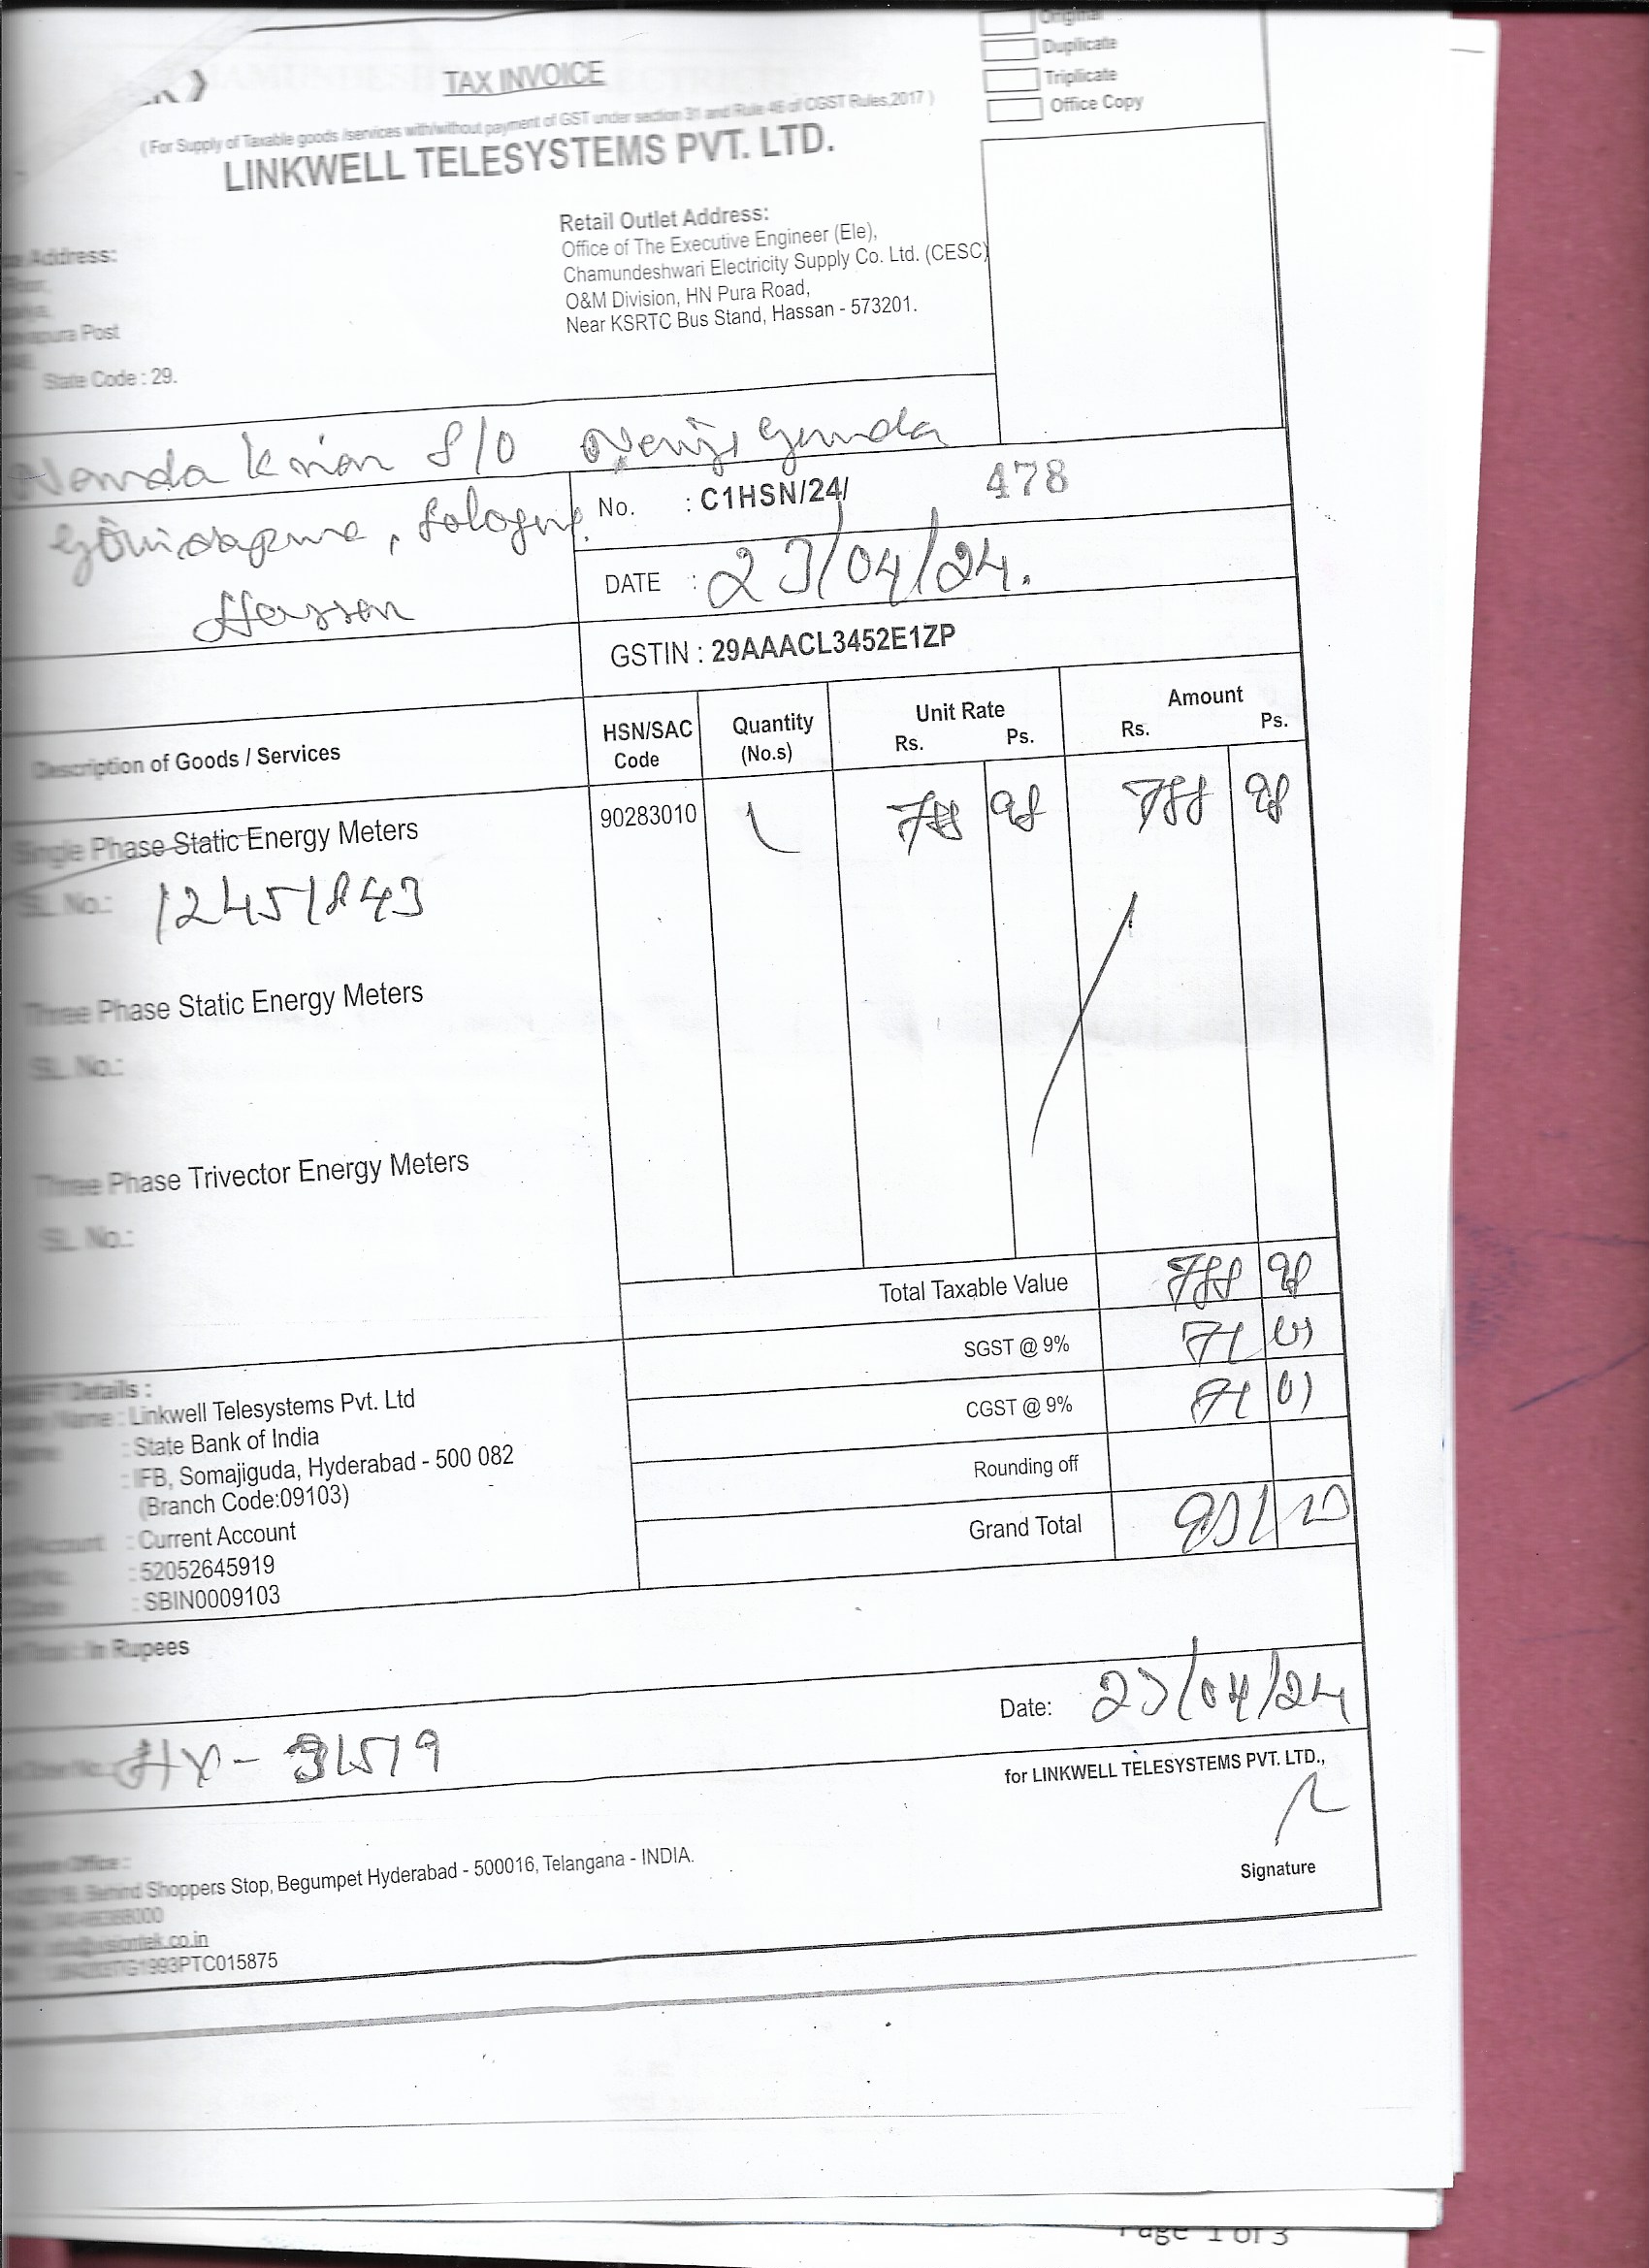 Original
Duplicate
Triplicate
Office Copy
TAX INVOICE
( For Supply of Taxable goods /services with/without payment of GST under section 31 and Rule 46 of CGST Rules,2017 )
LINKWELL TELESYSTEMS PVT. LTD.
Address:
State Code : 29.
Retail Outlet Address:
Office of The Executive Engineer (Ele),
Chamundeshwari Electricity Supply Co. Ltd. (CESC)
O&M Division, HN Pura Road,
Near KSRTC Bus Stand, Hassan - 573201.
S/O
Hassan
No. : C1HSN/24/ 478
DATE : 23/04/24.
GSTIN : 29AAACL3452E1ZP
Description of Goods / Services HSN/SAC Code Quantity (No.s) Unit Rate Rs. Ps. Amount Rs. Ps.
Single Phase Static Energy Meters 90283010 1 788 98 788 98
SL No.: 12451843
Three Phase Static Energy Meters
SL No.:
Three Phase Trivector Energy Meters
SL No.:
Total Taxable Value 788 98
SGST @ 9% 71 01
CGST @ 9% 71 01
Rounding off
Grand Total 931
Details :
Name : Linkwell Telesystems Pvt. Ltd
: State Bank of India
: IFB, Somajiguda, Hyderabad - 500 082
(Branch Code:09103)
Account : Current Account
: 52052645919
: SBIN0009103
In Rupees
Date: 23/04/24
for LINKWELL TELESYSTEMS PVT. LTD.,
Signature
Office :
Behind Shoppers Stop, Begumpet Hyderabad - 500016, Telangana - INDIA.
1993PTC015875
Page 1 of 3